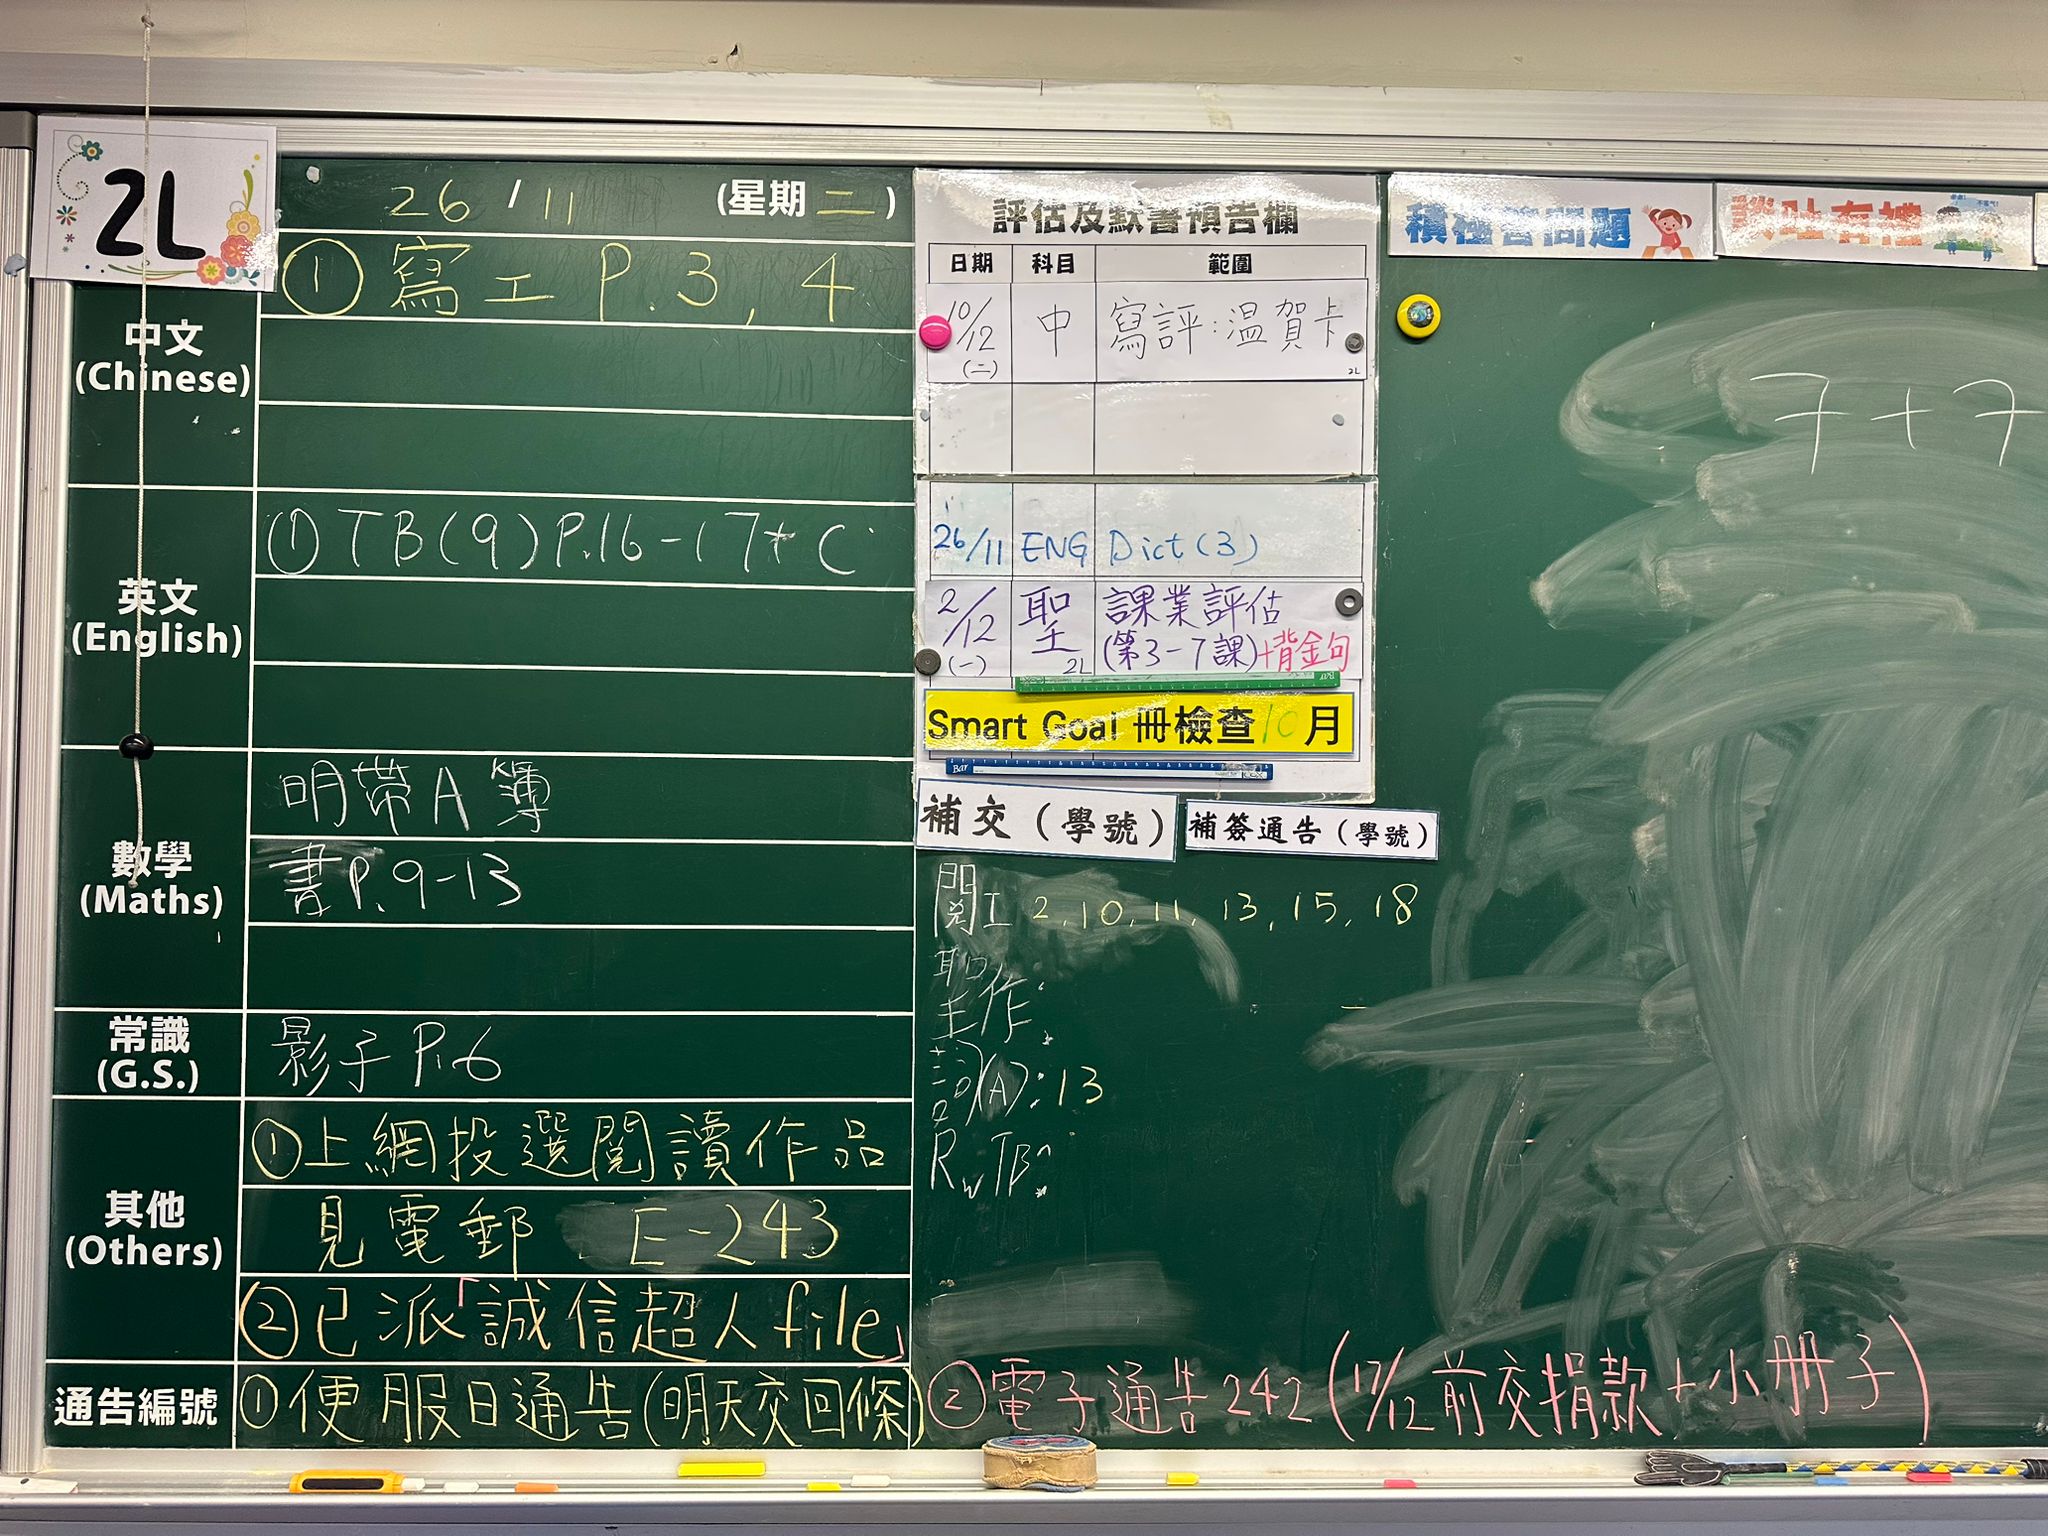 2L
26 / 11 (星期 二 )
中文
(Chinese)
① 寫工 P. 3, 4
英文
(English)
① TB(9) P.16-17 + C
數學
(Maths)
明帶 A 簿
書 P. 9-13
常識
(G.S.)
影子 P.6
其他
(Others)
① 上網投選閱讀作品
見電郵 E-243
② 已派「誠信超人 file」
通告編號
① 便服日通告(明天交回條)
② 電子通告 242 (17/12 前交捐款 + 小冊子)
評估及默書預告欄
日期 科目 範圍
10/12 (二) 中 寫評：温賀卡 2L
26/11 ENG Dict (3)
2/12 (一) 聖 2L 課業評估
(第3-7課)+背金句
Smart Goal 冊檢查 10 月
補交（學號）
補簽通告（學號）
閱工 2, 10, 11, 13, 15, 18
聖作:
詞(A): 13
RwTB:
積極答問題
7 + 7